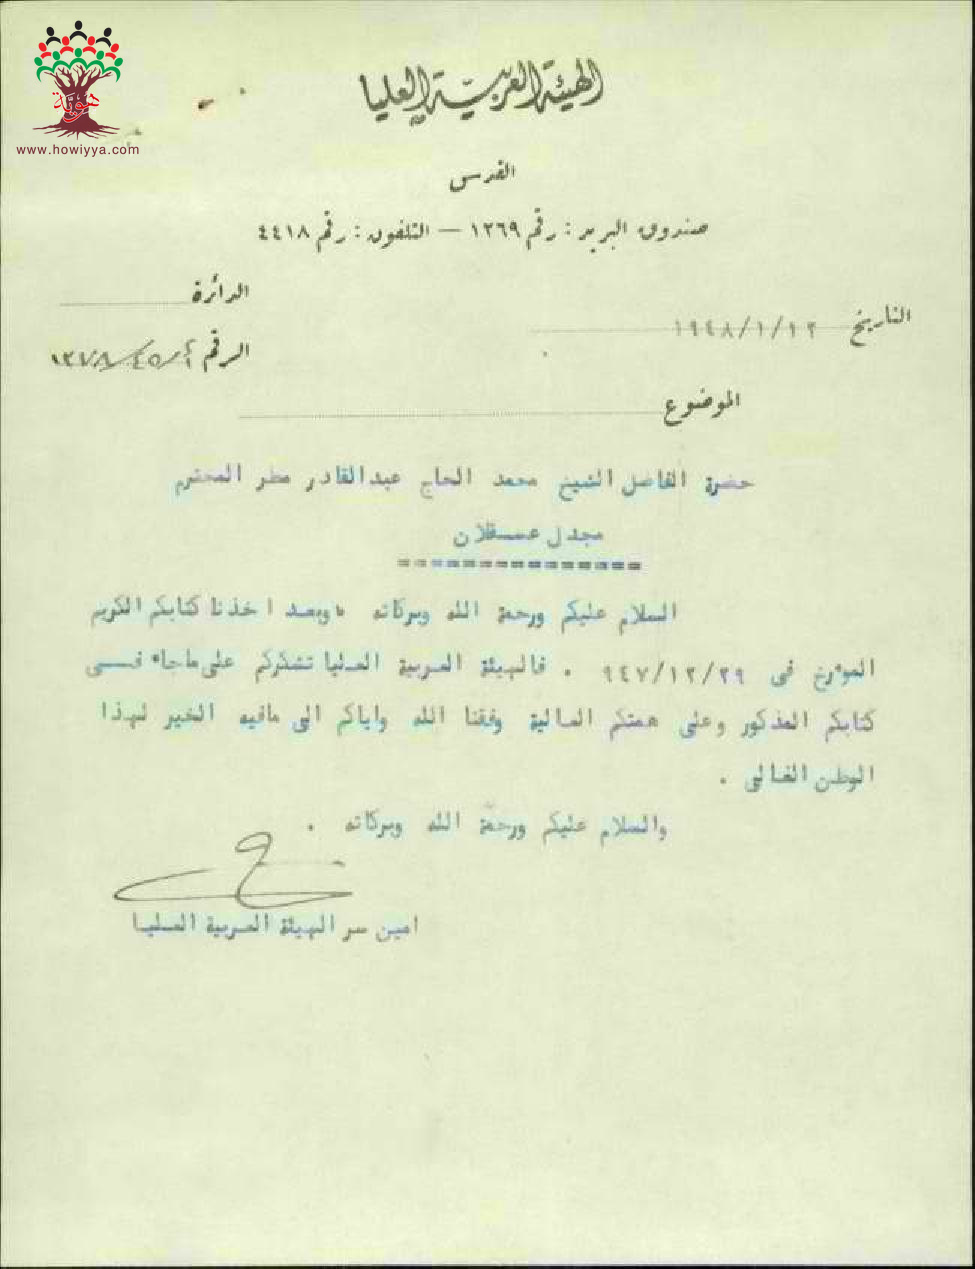 هوية
www.howiyya.com
الهيئة العربية العليا
القدس
صندوق البريد : رقم ١٢٦٩ — التلفون : رقم ٤٤١٨
الدائرة
التاريخ ١٩٤٨/١/١٢
الرقم
الموضوع
حضرة الفاضل الشيخ محمد الحاج عبدالقادر مطر المحترم
مجدل عسقلان
================
السلام عليكم ورحمة الله وبركاته ، وبعد اخذنا كتابكم الكريم
الموءرخ في ٩٤٧/١٢/٢٩ . فالهيئة العربية العليا تشكركم على ماجاء فـــي
كتابكم المذكور وعلى همتكم العالية وفقنا الله واياكم الى مافيه الخير لهذا
الوطن الغالي .
والسلام عليكم ورحمة الله وبركاته .
امين سر الهيئة العربية العليا